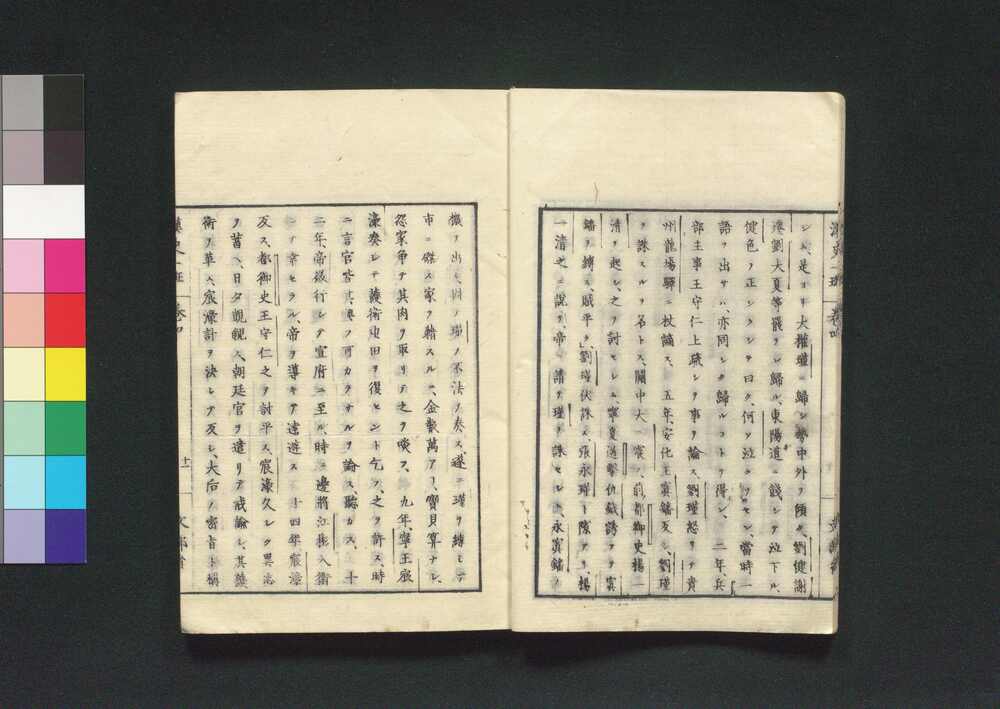 シム是ヨリ大權瑾ニ歸シ勢中外ヲ傾ク劉健謝
遷劉大夏等罷ラレ歸ル東陽道ニ餞シテ泣下ル
健色ヲ正シクシテ曰ク何ソ泣クヲセン當時一
語ヲ出サハ亦同シク歸ルコトヲ得ン 二年兵
部主事王守仁上疏シテ事ヲ論ス劉瑾怒リテ貴
州龍場驛ニ杖謫ス 五年安化王寘鐇反シ劉瑾
ヲ誅スルヲ名トス關中大ニ震フ前都御史楊一
清ヲ起シ之ヲ討セシム寧夏遊擊仇鉞誘ヲ寘
鐇ヲ縛ス賊平ク劉瑾伏誅ス張永瑾ト隙アリ楊
一清之ニ說キ帝ニ請ヲ瑾ヲ誅セシム永寘鐇ノ
檄ヲ出シ因テ瑾ノ不法ヲ奏ス遂ニ瑾ヲ縛シテ
市ニ磔ス家ヲ籍スルニ金數萬アリ寶貝算ナシ
怨家爭テ其肉ヲ取リテ之ヲ噉フ 九年寧王宸
濠奏シテ護衛屯田ヲ復セント乞フ之ヲ許ス時
ニ言官皆其專ノ可カラサルヲ論ス聽カス 十
二年帝微行シテ宣府ニ至ル時ニ邊將江彬入衛
シテ幸セラル帝ヲ導キテ遠遊ス 十四年宸濠
反ス都御史王守仁之ヲ討平ス宸濠久シク異志
ヲ蓄ヘ日夕覬覦ス朝廷官ヲ遣リテ戒諭シ其護
衛ヲ革ス宸濠計ヲ決シテ反シ大后ノ密旨ト稱
卷四
十一